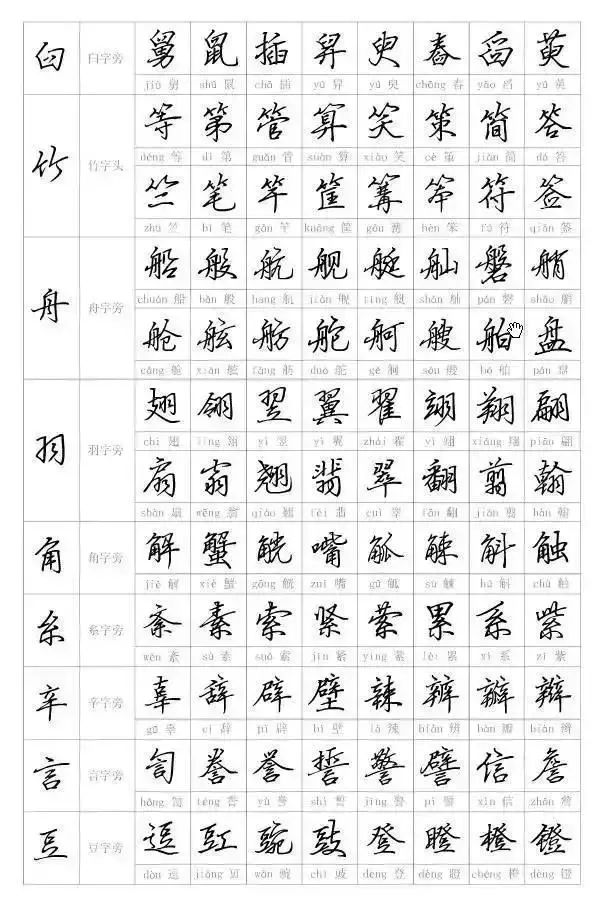 臼 臼字旁 舅 鼠 插 舁 臾 舂 舀 萸
jiù 舅 shǔ 鼠 chā 插 yú 舁 yú 臾 chōng 舂 yǎo 舀 yú 萸
竹 竹字头 等 第 管 算 笑 策 简 答
děng 等 dì 第 guǎn 管 suàn 算 xiào 笑 cè 策 jiǎn 简 dá 答
竺 笔 竿 筐 篝 笨 符 签
zhú 竺 bǐ 笔 gān 竿 kuāng 筐 gōu 篝 bèn 笨 fú 符 qiān 签
舟 舟字旁 船 般 航 舰 艇 舢 磐 艄
chuán 船 bān 般 háng 航 jiàn 舰 tǐng 艇 shān 舢 pán 磐 shāo 艄
舱 舷 舫 舵 舸 艘 舶 盘
cāng 舱 xián 舷 fǎng 舫 duò 舵 gě 舸 sōu 艘 bó 舶 pán 盘
羽 羽字旁 翅 翎 翌 翼 翟 翊 翔 翩
chì 翅 líng 翎 yì 翌 yì 翼 zhái 翟 yì 翊 xiáng 翔 piān 翩
扇 翁 翘 翡 翠 翻 翦 翰
shàn 扇 wēng 翁 qiáo 翘 fěi 翡 cuì 翠 fān 翻 jiǎn 翦 hàn 翰
角 角字旁 解 蟹 觥 嘴 觚 觫 斛 触
jiě 解 xiè 蟹 gōng 觥 zuǐ 嘴 gū 觚 sù 觫 hú 斛 chù 触
糸 系字旁 紊 素 索 紧 萦 累 系 紫
wěn 紊 sù 素 suǒ 索 jǐn 紧 yíng 萦 lèi 累 xì 系 zǐ 紫
辛 辛字旁 辜 辞 辟 壁 辣 辨 瓣 辩
gū 辜 cí 辞 pì 辟 bì 壁 là 辣 biàn 辨 bàn 瓣 biàn 辩
言 言字旁 訇 誊 誉 誓 警 譬 信 詹
hōng 訇 téng 誊 yù 誉 shì 誓 jǐng 警 pì 譬 xìn 信 zhān 詹
豆 豆字旁 逗 豇 豌 豉 登 瞪 橙 镫
dòu 逗 jiāng 豇 wān 豌 chǐ 豉 dēng 登 dèng 瞪 chéng 橙 dèng 镫